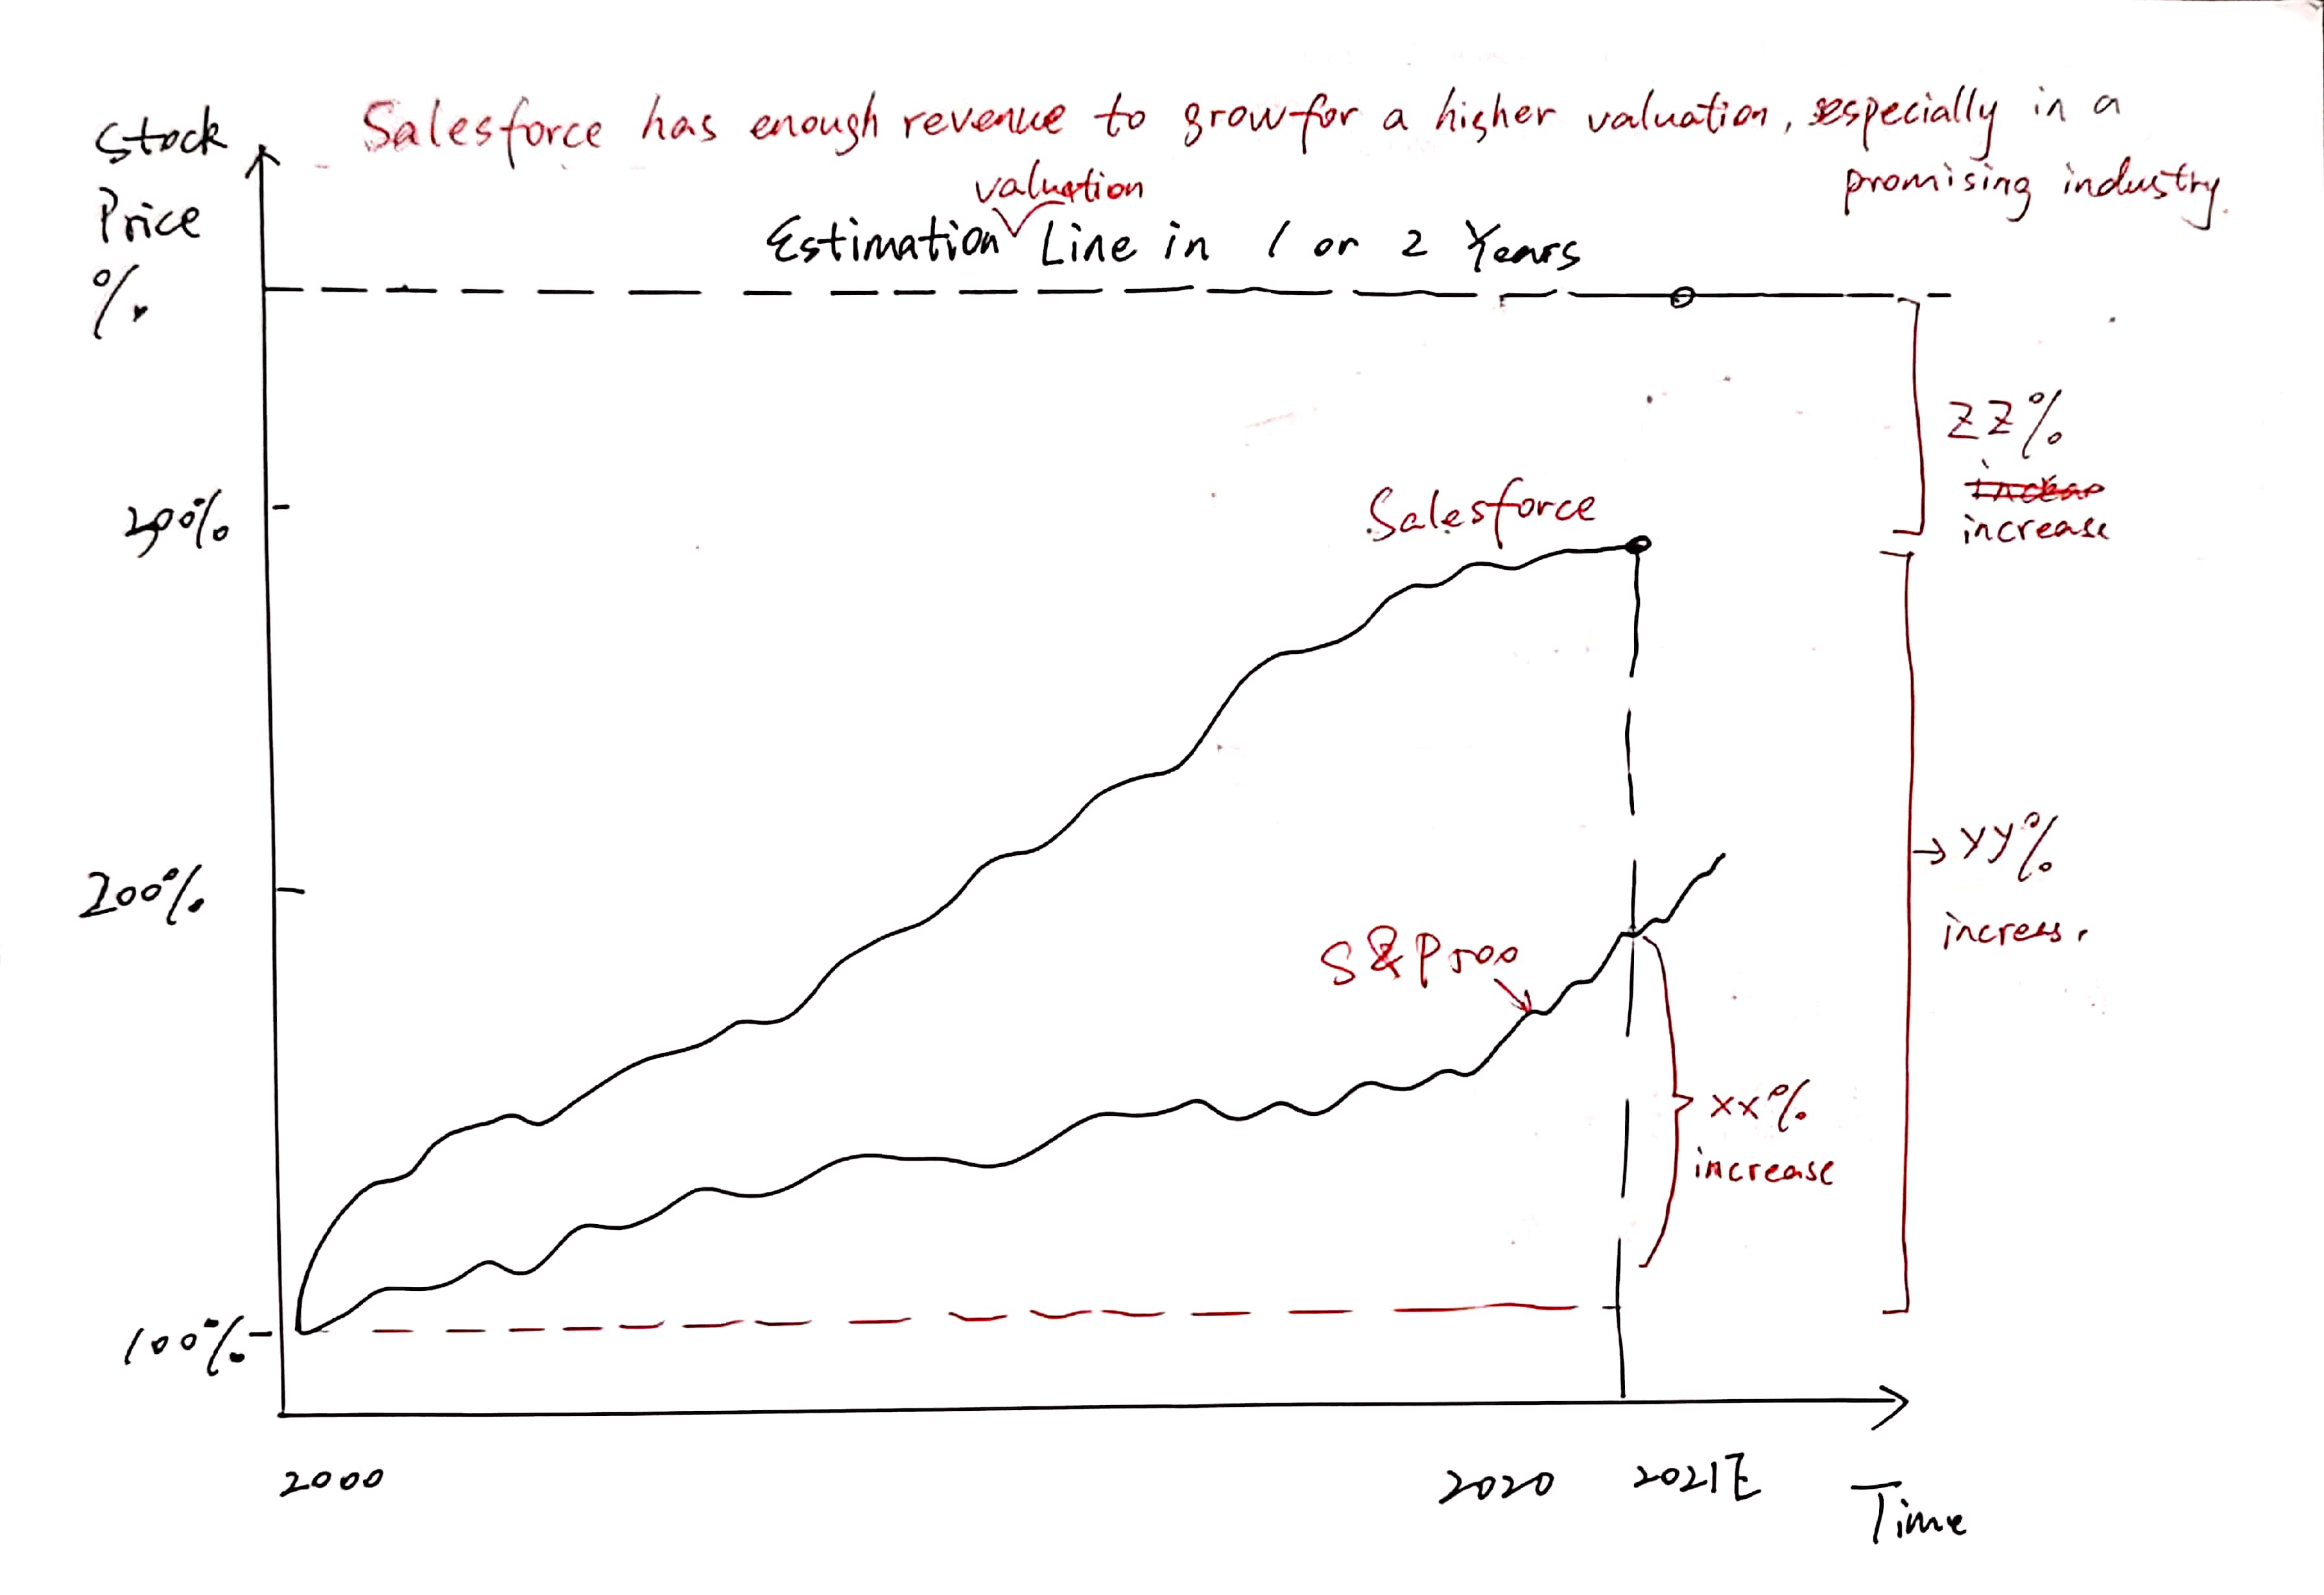 Salesforce has enough revenue to grow for a higher valuation, especially in a
promising industry.
Stock
Price
%
valuation
Estimation Line in 1 or 2 Years
ZZ%
increase
300%
Salesforce
200%
YY%
S&P500
XX%
increase
100%
2000
2020
2021E
Time